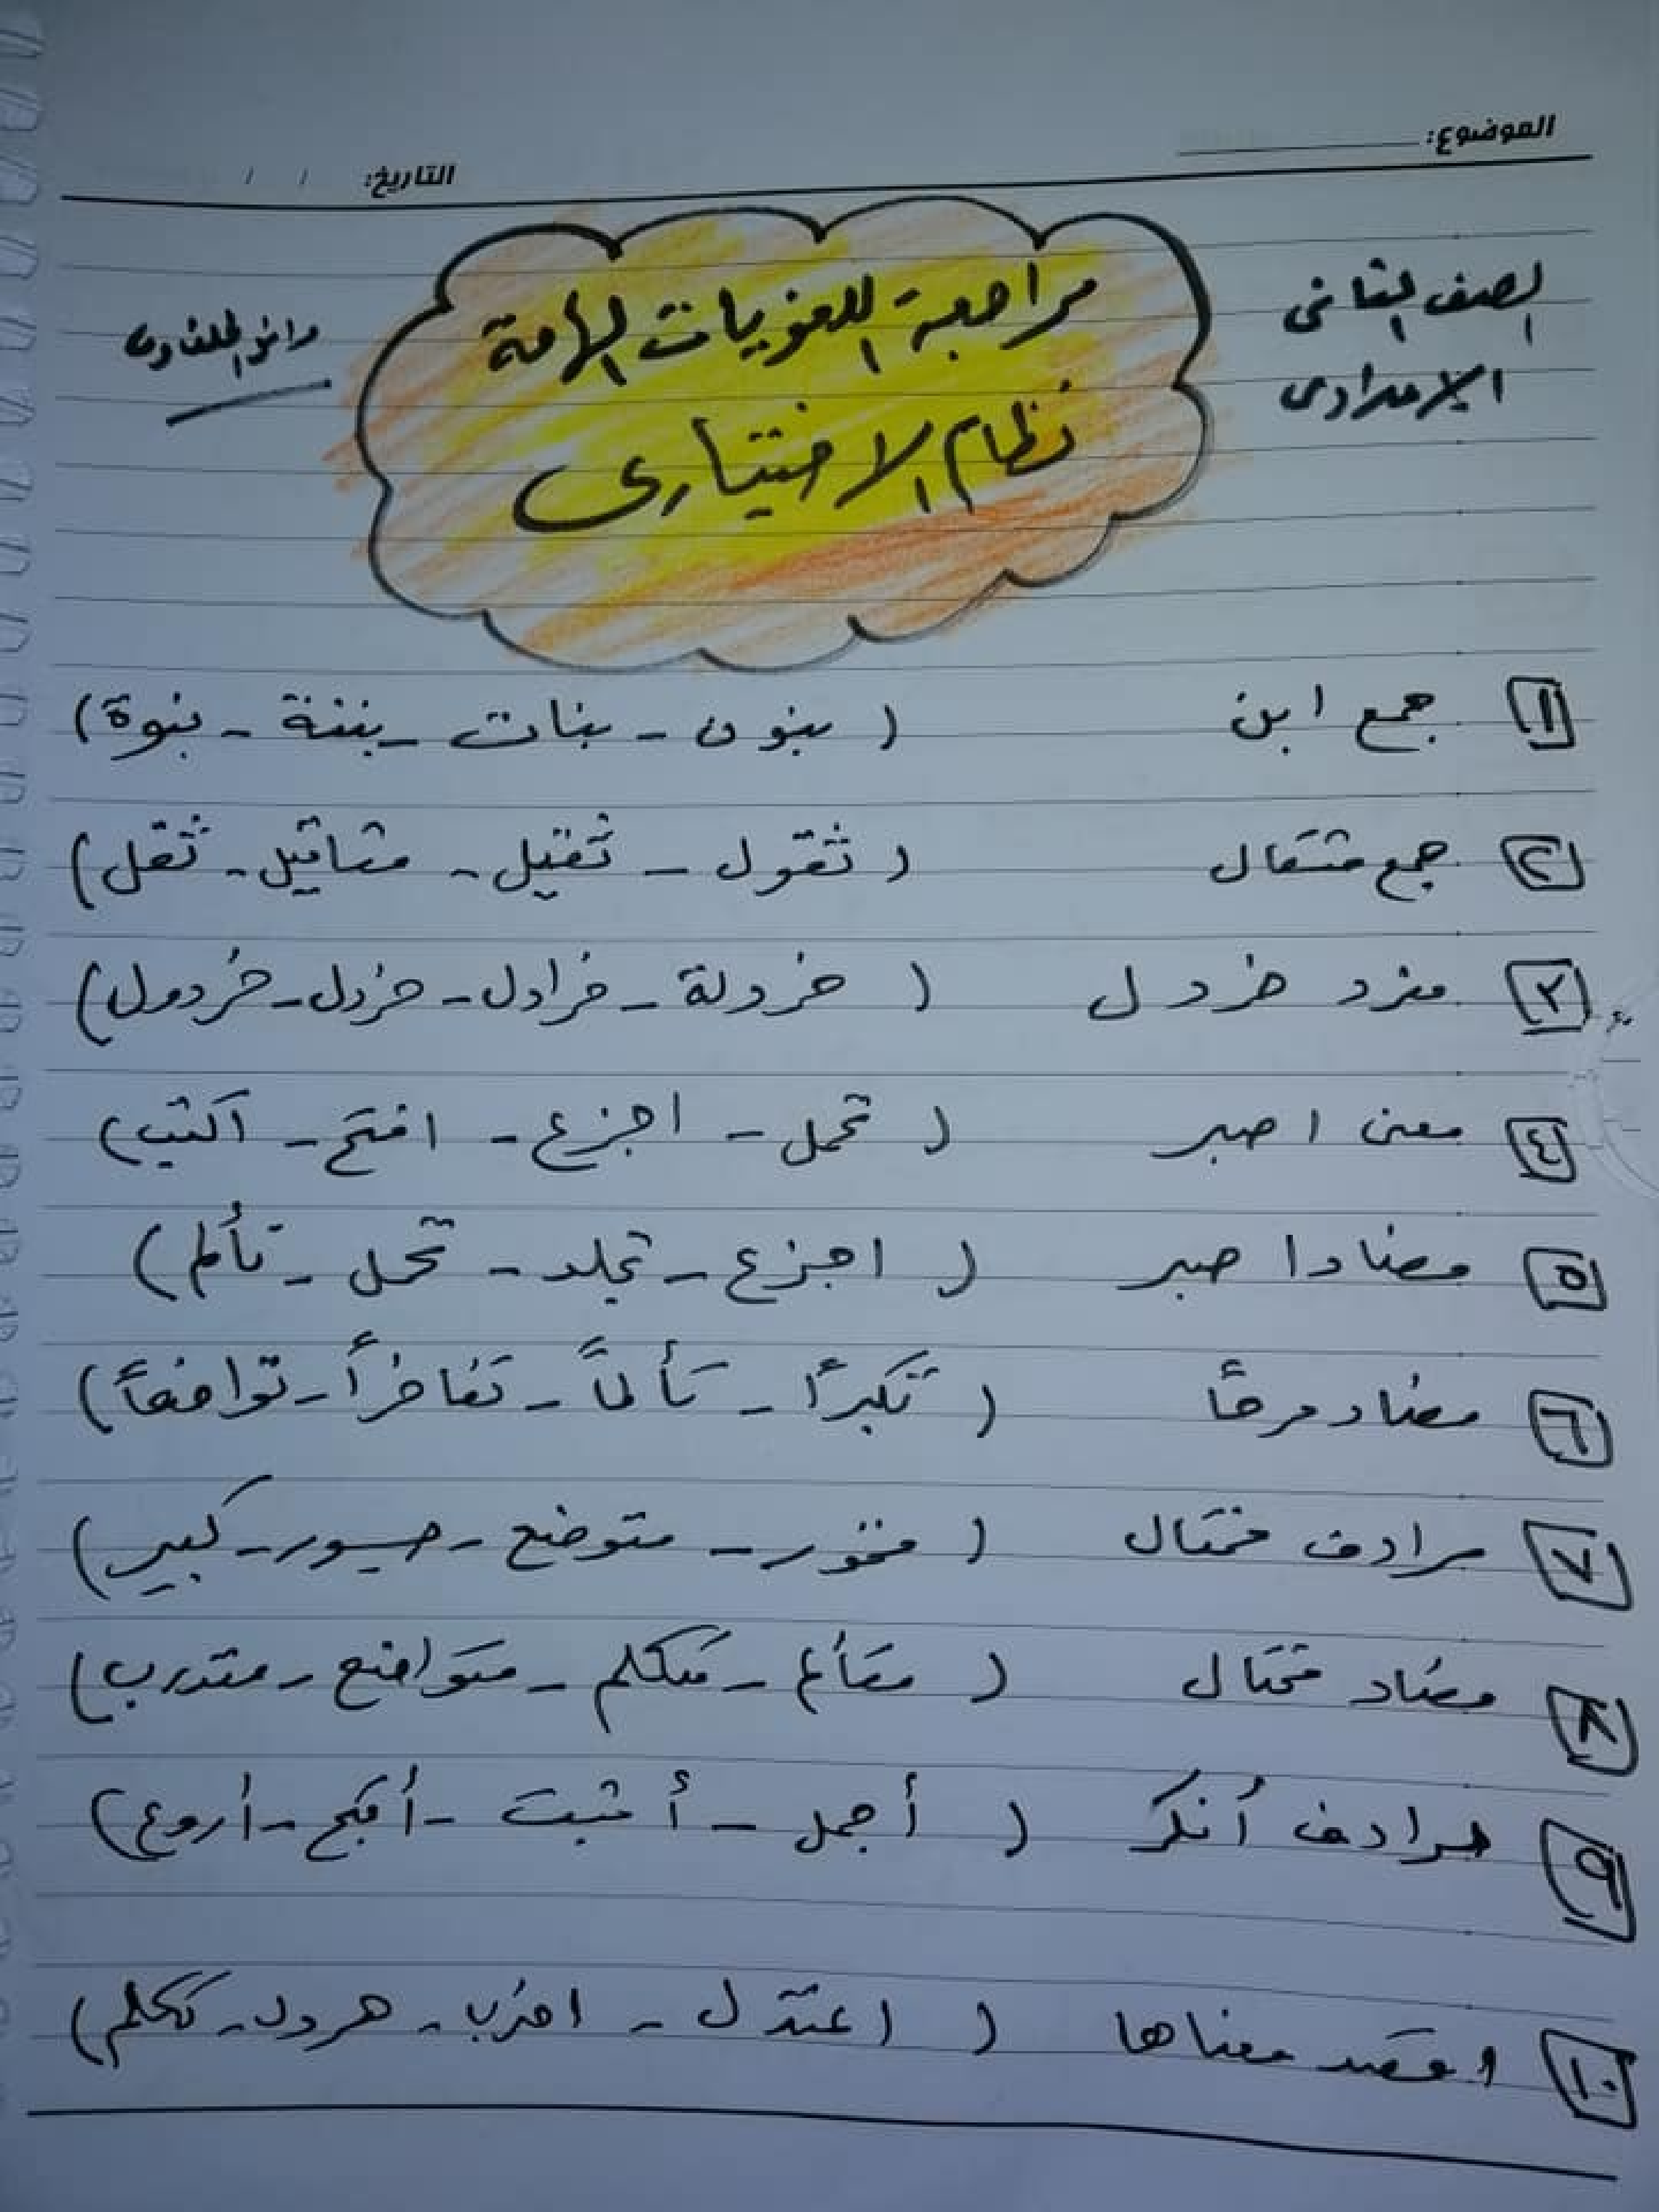 الموضوع:
التاريخ: / /
الصف الثانى
الإعدادى
مراجعة اللغويات الهامة
نظام الاختيارى
1 جمع ابن ( بنون - بنات - بننة - بنوة )
٢ جمع مثقال ( ثقول - ثقيل - مثاقيل - ثقل )
٣ مفرد خردل ( خردلة - خرادل - خردل - خردول )
٤ معنى اصبر ( تحمل - اجزع - افتح - اكتب )
٥ مضاد اصبر ( اجزع - تجلد - تحمل - تألم )
٦ مضاد مرحًا ( تكبرًا - تألمًا - تفاخرًا - تواضعًا )
٧ مرادف مختال ( فخور - متوضع - جسور - كبير )
٨ مضاد مختال ( متألم - متكلم - متواضع - متدرب )
٩ مرادف أنكر ( أجمل - أثبت - أقبح - أروع )
١٠ اقصد معناها ( اعتدل - اضرب - هرول - تكلم )